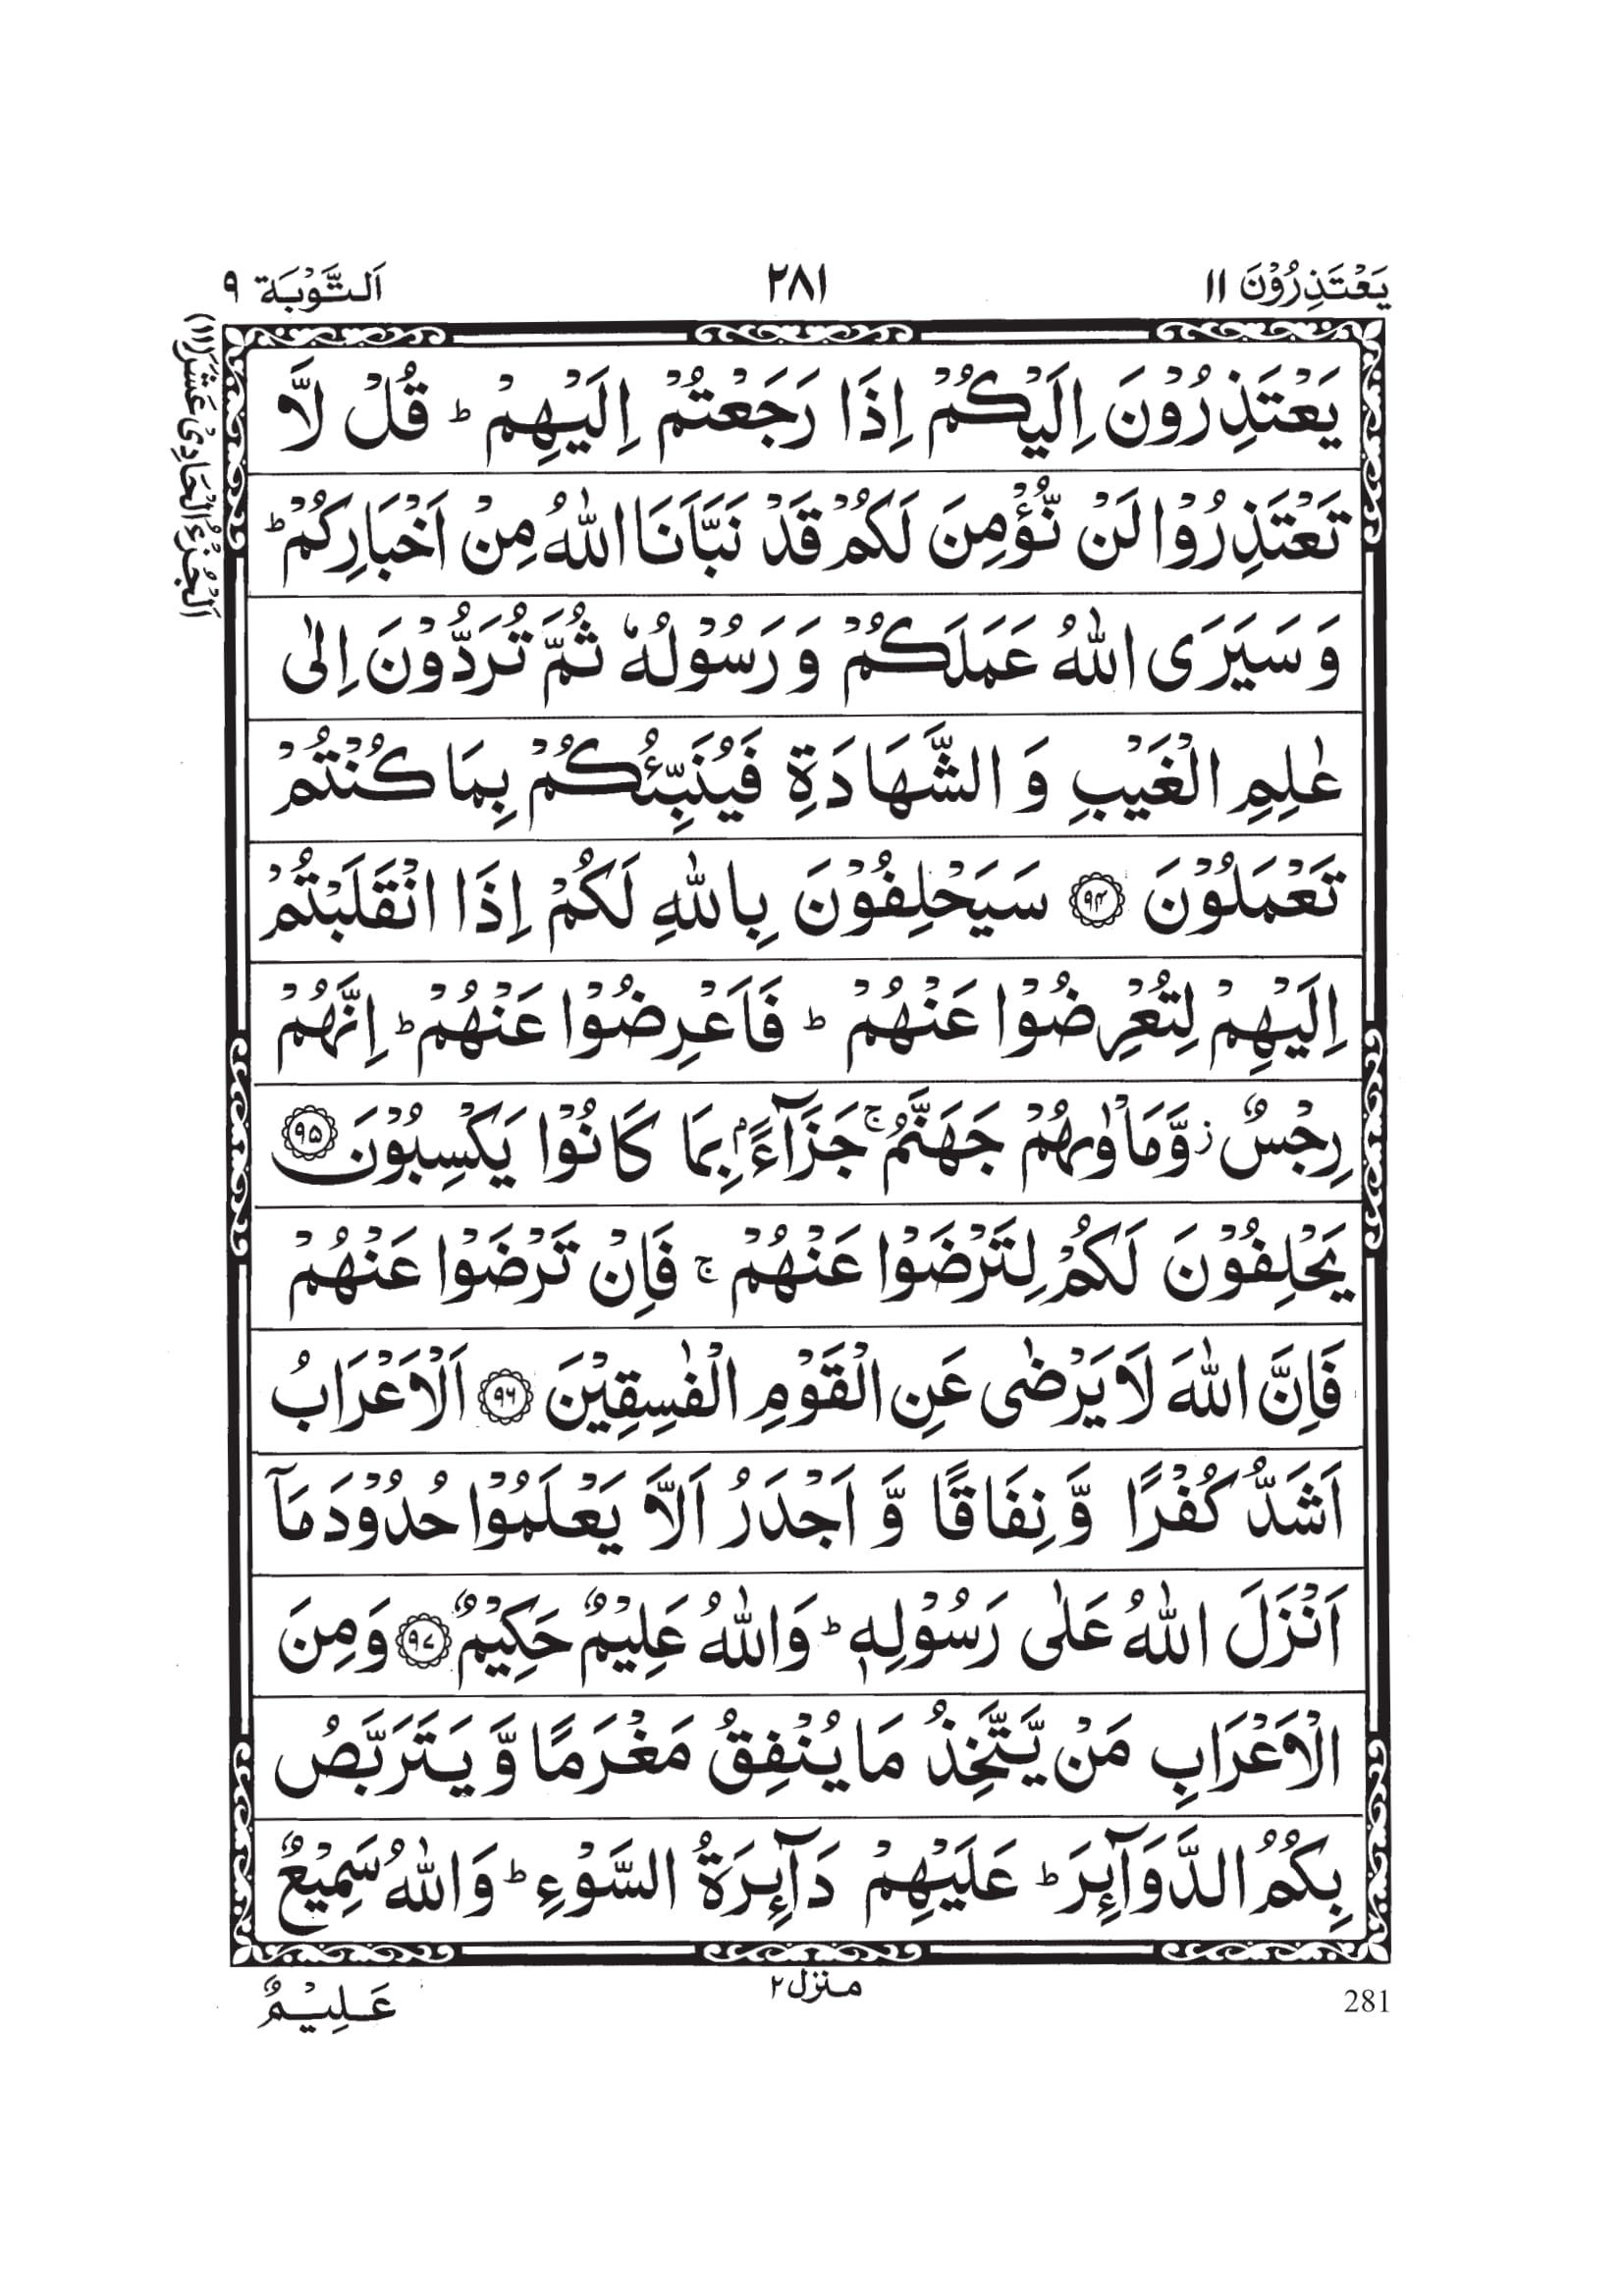 يَعْتَذِرُوْنَ ١١
٢٨١
اَلتَّوْبَة ٩
اَلْجُزْءُ الْحَادِیْ عَشَرَ (١١)
يَعْتَذِرُوْنَ اِلَيْكُمْ اِذَا رَجَعْتُمْ اِلَيْهِمْ ؕ قُلْ لَّا
تَعْتَذِرُوْا لَنْ نُّؤْمِنَ لَكُمْ قَدْ نَبَّاَنَا اللّٰهُ مِنْ اَخْبَارِكُمْ ؕ
وَ سَيَرَی اللّٰهُ عَمَلَكُمْ وَ رَسُوْلُهٗ ثُمَّ تُرَدُّوْنَ اِلٰی
عٰلِمِ الْغَيْبِ وَ الشَّهَادَةِ فَيُنَبِّئُكُمْ بِمَا كُنْتُمْ
تَعْمَلُوْنَ ﴿۹۴﴾ سَيَحْلِفُوْنَ بِاللّٰهِ لَكُمْ اِذَا انْقَلَبْتُمْ
اِلَيْهِمْ لِتُعْرِضُوْا عَنْهُمْ ؕ فَاَعْرِضُوْا عَنْهُمْ ؕ اِنَّهُمْ
رِجْسٌ ؗ وَّمَاْوٰىهُمْ جَهَنَّمُ ۚ جَزَآءًۢ بِمَا كَانُوْا يَكْسِبُوْنَ ﴿۹۵﴾
يَحْلِفُوْنَ لَكُمْ لِتَرْضَوْا عَنْهُمْ ۚ فَاِنْ تَرْضَوْا عَنْهُمْ
فَاِنَّ اللّٰهَ لَا يَرْضٰی عَنِ الْقَوْمِ الْفٰسِقِيْنَ ﴿۹۶﴾ اَلْاَعْرَابُ
اَشَدُّ كُفْرًا وَّ نِفَاقًا وَّ اَجْدَرُ اَلَّا يَعْلَمُوْا حُدُوْدَ مَاۤ
اَنْزَلَ اللّٰهُ عَلٰی رَسُوْلِهٖ ؕ وَاللّٰهُ عَلِيْمٌ حَكِيْمٌ ﴿۹۷﴾ وَمِنَ
الْاَعْرَابِ مَنْ يَّتَّخِذُ مَا يُنْفِقُ مَغْرَمًا وَّ يَتَرَبَّصُ
بِكُمُ الدَّوَآئِرَ ؕ عَلَيْهِمْ دَآئِرَةُ السَّوْءِ ؕ وَاللّٰهُ سَمِيْعٌ
عَلِيْمٌ
منزل ٢
281